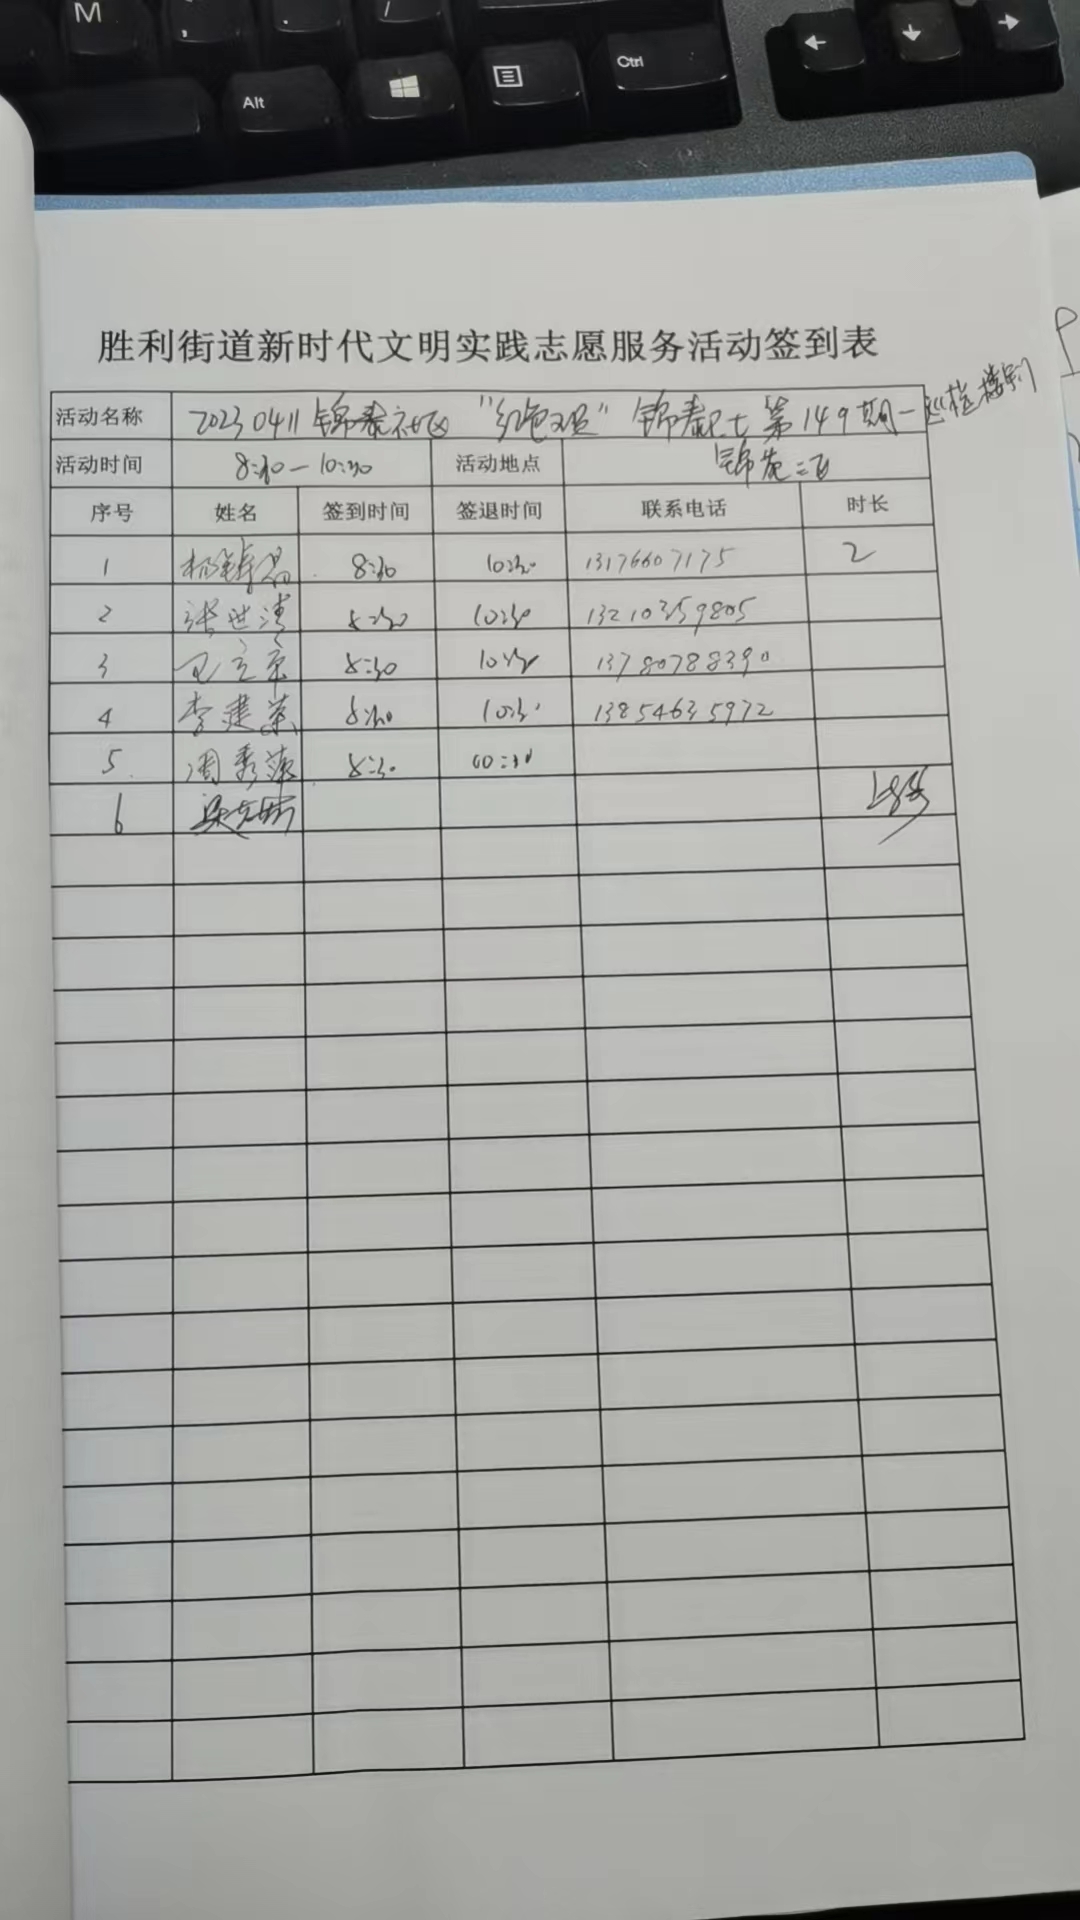 M
,
.
/
Alt
Ctrl
胜利街道新时代文明实践志愿服务活动签到表
活动名称 20230411锦泰社区 "红色" 锦泰卫士第149期一巡检楼宇门
活动时间 8:30—10:30 活动地点 锦苑二区
序号 姓名 签到时间 签退时间 联系电话 时长
1 8:30 10:30 13176607175 2
2 张世清 8:30 10:30 13210359805
3 8:30 10:30 13780788390
4 李建英 8:30 10:30 13854635972
5 周秀萍 8:30 10:30
6